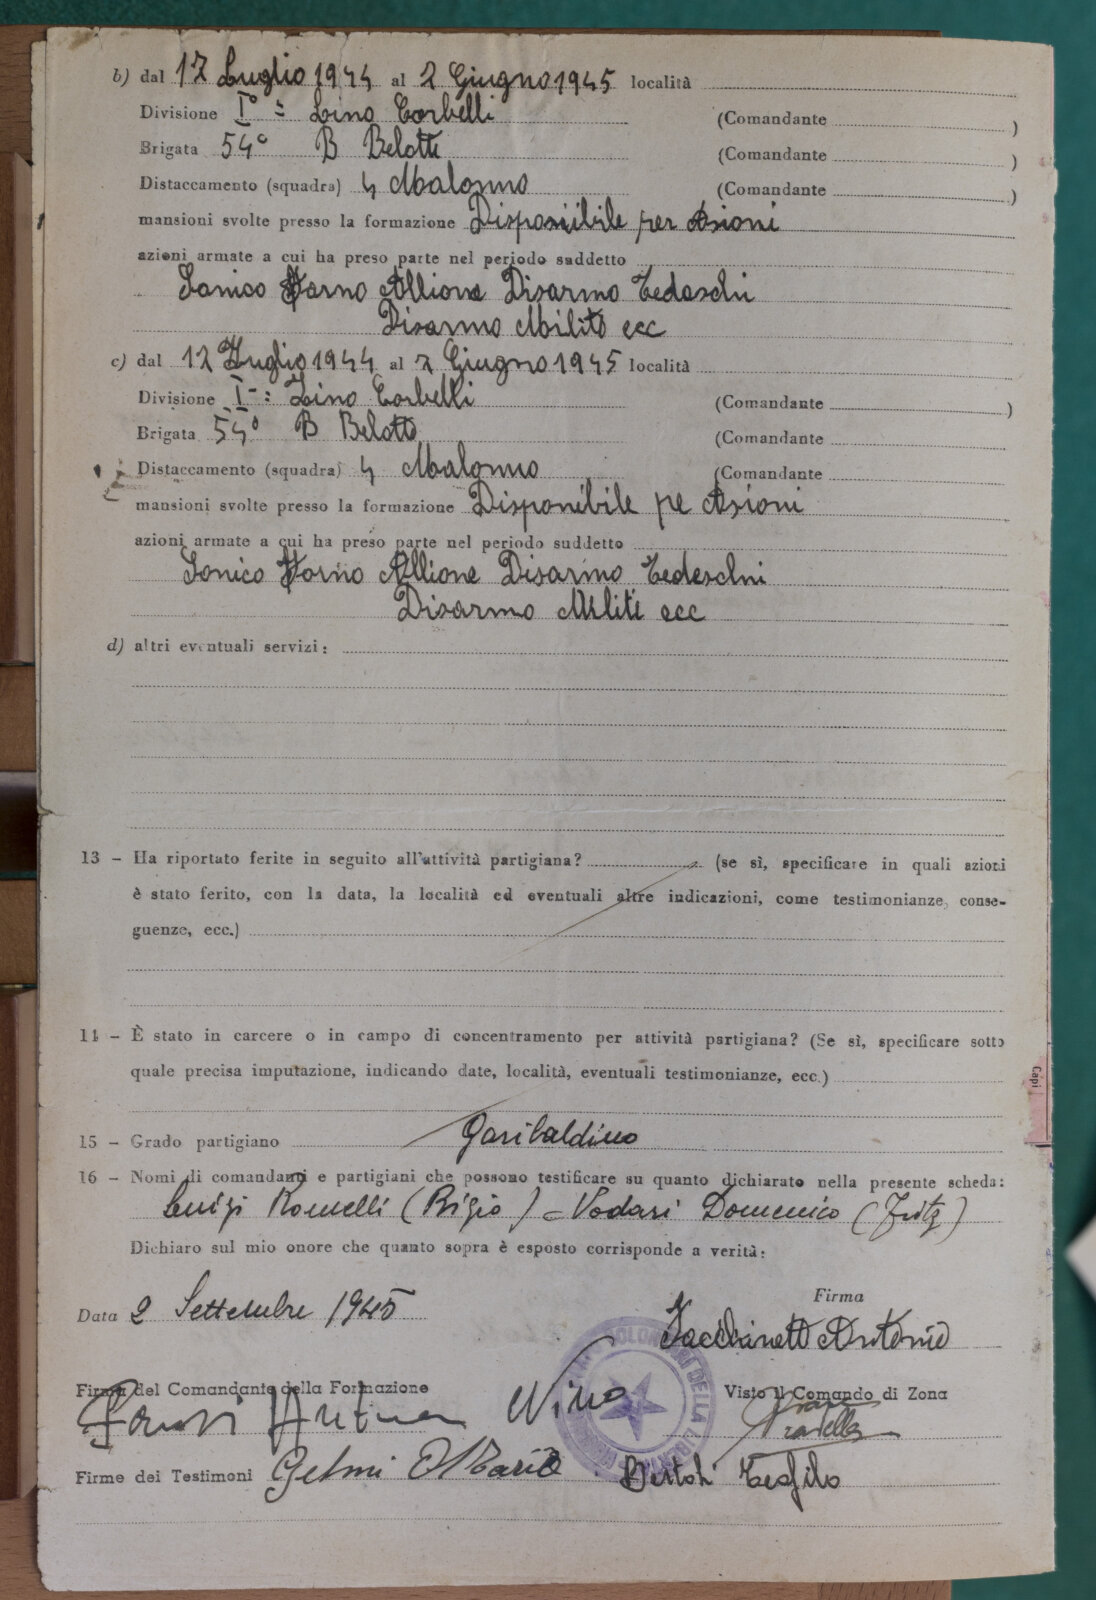 b) dal 17 Luglio 1944 al 2 Giugno 1945 località
Divisione I° = Lino Corbelli (Comandante )
Brigata 54° B Belotti (Comandante )
Distaccamento (squadra) 4 Malonno (Comandante )
mansioni svolte presso la formazione Disponiibile per Asioni
azioni armate a cui ha preso parte nel periodo suddetto
Sonico Forno Allione Disarmo Tedeschi
Disarmo Militi ecc
c) dal 17 Luglio 1944 al 2 Giugno 1945 località
Divisione I - : Lino Corbelli (Comandante )
Brigata 54° B Belotti (Comandante
Distaccamento (squadra) 4 Malonno (Comandante
mansioni svolte presso la formazione Disponibile pe Asioni
azioni armate a cui ha preso parte nel periodo suddetto
Sonico Forno Allione Disarmo Tedeschi
Disarmo Militi ecc
d) altri eventuali servizi:
13 – Ha riportato ferite in seguito all'attività partigiana? (se sì, specificare in quali azioni
è stato ferito, con la data, la località ed eventuali altre indicazioni, come testimonianze, conse-
guenze, ecc.)
14 – È stato in carcere o in campo di concentramento per attività partigiana? (Se sì, specificare sotto
quale precisa imputazione, indicando date, località, eventuali testimonianze, ecc.)
Capi
15 – Grado partigiano Garibaldino
16 – Nomi di comandanti e partigiani che possono testificare su quanto dichiarato nella presente scheda:
Luigi Romelli (Bigio) = Vodari Domenico (Fritz)
Dichiaro sul mio onore che quanto sopra è esposto corrisponde a verità:
Firma
Data 2 Settembre 1945
Facchinetti Antonio
Firma del Comandante della Formazione Nino Visto il Comando di Zona
DELLA
Firme dei Testimoni Gelmi Mario Bertoli Teofilo